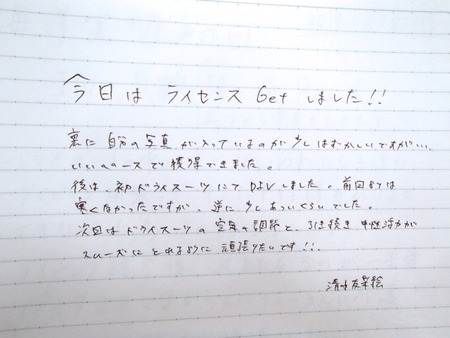 今日は ライセンス Get しました!!
裏に自分の写真が入っているのが少しはずかしいですが…
いいペースで獲得できました。
後は、初ドライスーツにて DIVしました。前回よりは
寒くなかったですが、逆に少しあついくらいでした。
次回はドライスーツの空気の調節と、引き続き中性浮力が
スムーズにとれるように頑張りたいです!!
清水友梨絵